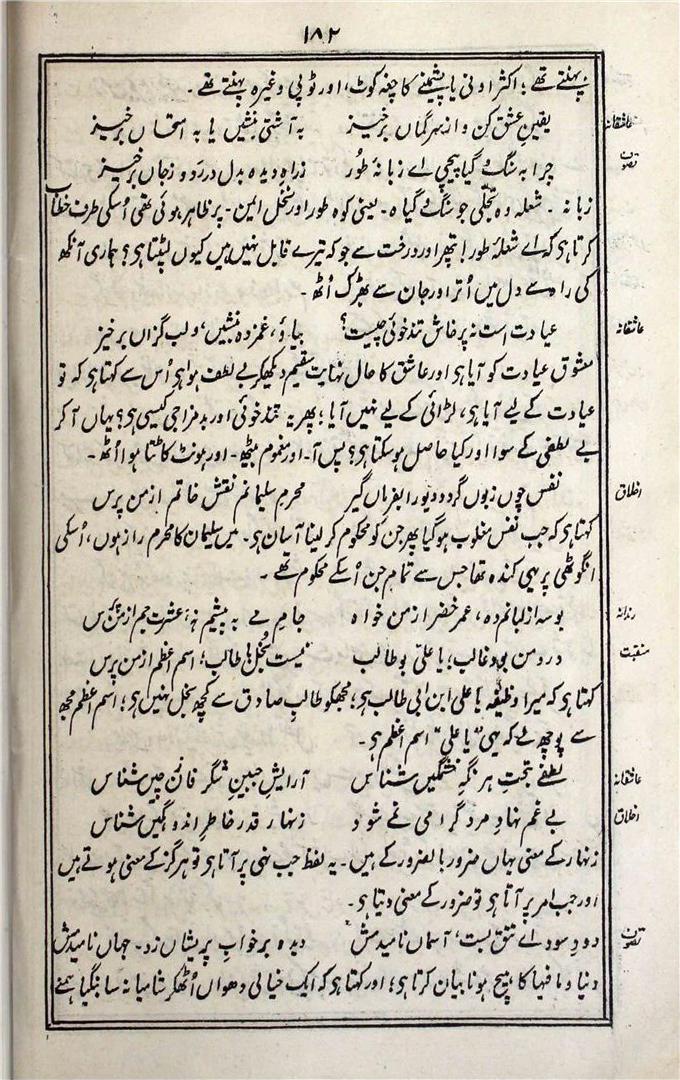 ۱۸۲
پہنتے تھے؛ اکثر اونی یا پشمینے کا چغہ کوٹ، اور ٹوپی وغیرہ پہنتے تھے۔
عاشقانہ یقینِ عشق کن و از سرِ گماں برخیز بہ آشتی بنشیں یا بہ امتحاں برخیز
تصوف چرا بہ سنگ و گیا پیچی اے زبانۂ طور زراہِ دیدہ بدل در رَو و زجاں برخیز
زبانہ۔ شعلہ وہ تجلّی جو سنگ و گیاہ۔ یعنی کوہِ طور اور نخلِ ایمن۔ پر ظاہر ہوئی تھی اُسکی طرف خطاب
کرتا ہی کہ اے شعلۂ طور! پتھر اور درخت سے جو کہ تیرے قابل نہیں ہیں کیوں لپٹتا ہی؟ ہماری آنکھ
کی راہ سے دل میں اُتر اور جان سے بھڑک اُٹھ۔
عاشقانہ عیادت است نہ پرخاش تندخوئی چیست؟ بیا و، غمزدہ بنشیں، و لب گزاں برخیز
معشوق عیادت کو آیا ہی اور عاشق کا حال نہایت سقیم دیکھکر بے لطف ہوا ہی اُس سے کہتا ہی کہ تو
عیادت کے لیے آیا ہی، لڑائی کے لیے نہیں آیا؛ پھر یہ تندخوئی اور بدمزاجی کیسی ہی؟ یہاں آ کر
بے لطفی کے سوا اور کیا حاصل ہو سکتا ہی؟ پس آ۔ اور مغموم بیٹھ۔ اور ہونٹ کاٹتا ہوا اُٹھ۔
اخلاق نفس چوں زبوں گردد دیو را بفرماں گیر محرمِ سلیمانم نقشِ خاتم از من پرس
کہتا ہی کہ جب نفس مغلوب ہو گیا پھر جن کو محکوم کر لینا آسان ہی۔ میں سلیمان کا محرم راز ہوں، اُسکی
انگوٹھی پر یہی کندہ تھا جس سے تمام جن اُسکے محکوم تھے۔
رندانہ بوسہ از لبانم دہ، عمرِ خضر از من خواہ جامِ مے بہ پیشم نہ، عشرتِ جم از من پرس
منقبت وردِ من بود غالب؛ یا علیِ بو طالب نیست بخل با طالب؛ اسمِ اعظم از من پرس
کہتا ہی کہ میرا وظیفہ یا علی ابن ابی طالب ہی؛ مجھکو طالبِ صادق سے کچھ بخل نہیں ہی؛ اسمِ اعظم مجھ
سے پوچھ لے کہ یہی "یا علی" اسم اعظم ہی۔
عاشقانہ لطفے بتحتِ ہر نگہِ خشمگیں شناس آرایشِ جبینِ شگرفاں ز چیں شناس
اخلاق بے غم نہادِ مرد گرامی نمے شود زنہار قدرِ خاطرِ اندوہگیں شناس
زنہار کے معنی یہاں ضرور بالضرور کے ہیں۔ یہ لفظ جب نہی پر آتا ہی تو ہرگز کے معنی ہوتے ہیں
اور جب امر پر آتا ہی تو ضرور کے معنی دیتا ہی۔
تصوف دودِ سودائے تتق بست، آسماں نامیدمش دیدہ بر خوابِ پریشاں زد۔ جہاں نامیدمش
دنیا و مافیہا کا ہیچ ہونا بیان کرتا ہی؛ اور کہتا ہی کہ ایک خیالی دھواں اُٹھکر شامیانہ سا بنگیا ہمنے